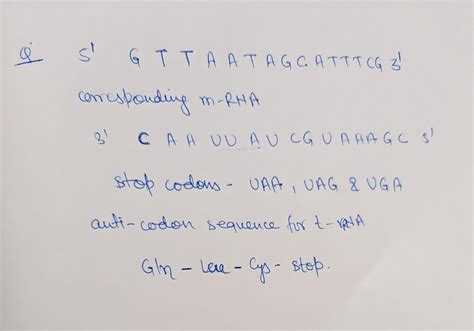 Q 5' G T T A A T A G C A T T T C G 3'
corresponding m-RNA
3' C A A U U A U C G U A A A G C 5'
stop codons - UAA, UAG & UGA
anti-codon sequence for t-RNA
Gln - Leu - Cys - stop.